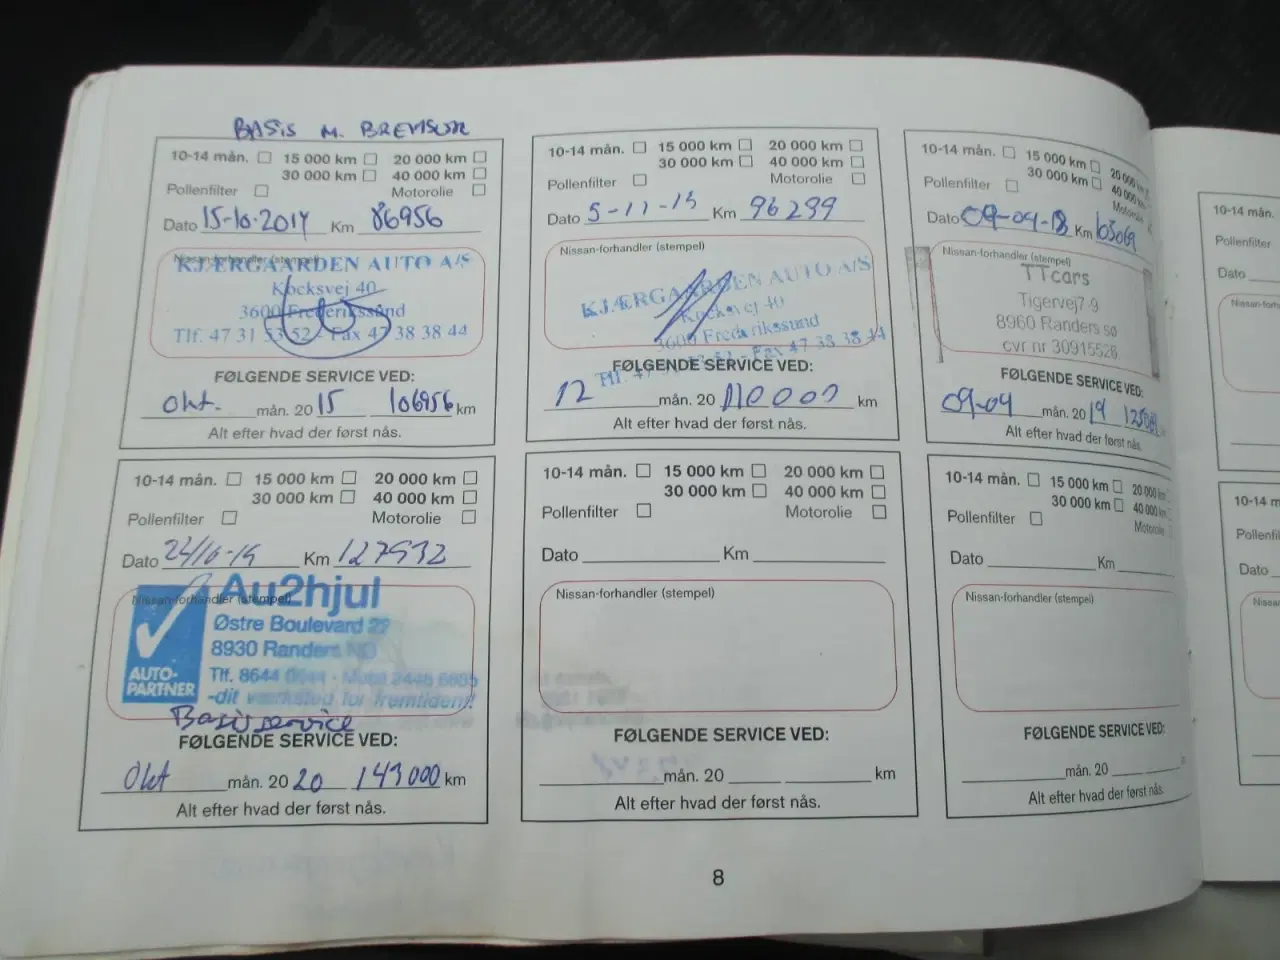 BASIS M. BREMSER
10-14 mån. 15 000 km 20 000 km
30 000 km 40 000 km
Pollenfilter Motorolie
Dato 15-10-2014 Km 86956
Nissan-forhandler (stempel)
KJÆRGAARDEN AUTO A/S
Kocksvej 40
3600 Frederikssund
Tlf. 47 31 53 52 - Fax 47 38 38 44
FØLGENDE SERVICE VED:
okt. mån. 20 15 106956 km
Alt efter hvad der først nås.
10-14 mån. 15 000 km 20 000 km
30 000 km 40 000 km
Pollenfilter Motorolie
Dato 5-11-15 Km 96299
Nissan-forhandler (stempel)
KJÆRGAARDEN AUTO A/S
Kocksvej 40
3600 Frederikssund
Tlf. 47 53 52 - Fax 47 38 38 44
FØLGENDE SERVICE VED:
12 mån. 20 110000 km
Alt efter hvad der først nås.
10-14 mån. 15 000 km 20 000
30 000 km 40 000
Pollenfilter Motorolie
Dato 09-04-18 Km 103069
Nissan-forhandler (stempel)
TTcars
Tigervej7-9
8960 Randers sø
cvr nr 30915528
FØLGENDE SERVICE VED:
09-04 mån. 20 19
Alt efter hvad der først nås.
10-14 mån. 15 000 km 20 000 km
30 000 km 40 000 km
Pollenfilter Motorolie
Dato Km 127932
Nissan-forhandler (stempel)
Au2hjul
Østre Boulevard
8930 Randers NØ
Tlf. 8644 Mobil
-dit værksted for fremtiden!
AUTO-
PARTNER
Basisservice
FØLGENDE SERVICE VED:
Okt mån. 20 20 143000 km
Alt efter hvad der først nås.
10-14 mån. 15 000 km 20 000 km
30 000 km 40 000 km
Pollenfilter Motorolie
Dato Km
Nissan-forhandler (stempel)
FØLGENDE SERVICE VED:
mån. 20 km
Alt efter hvad der først nås.
10-14 mån. 15 000 km 20 000 km
30 000 km 40 000 km
Pollenfilter Motorolie
Dato Km
Nissan-forhandler (stempel)
FØLGENDE SERVICE VED:
mån. 20
Alt efter hvad der først nås.
8
10-14 mån.
Pollenfilter
Dato
Nissan-forh
10-14 m
Pollenfil
Dato
Nissan